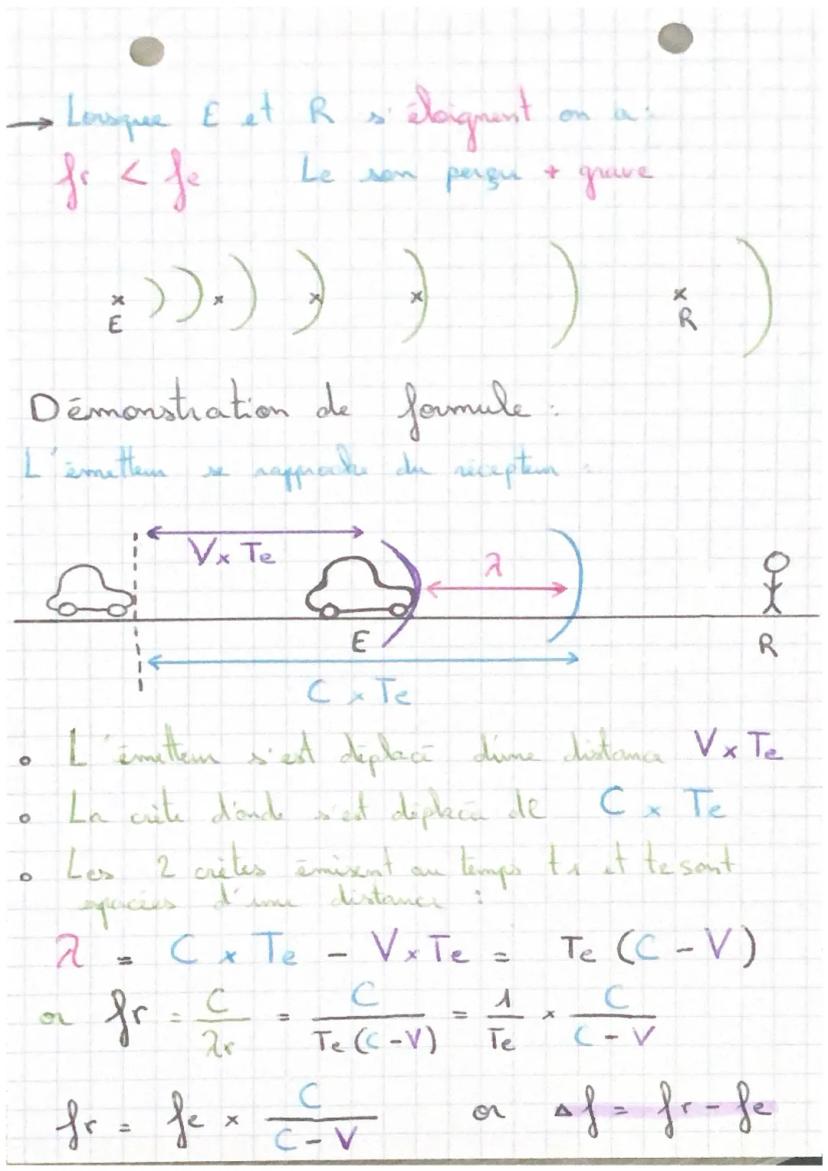 → Lorsque E et R s'éloignent on a :
fr < fe Le son perçu + grave
E R
Démonstration de formule :
L'émetteur se rapproche du récepteur :
V x Te
λ
E R
C x Te
• L'émetteur s'est déplacé d'une distance V x Te
• La crête d'onde s'est déplacée de C x Te
• Les 2 crêtes émisent au temps t1 et te sont
espacées d'une distance :
λ = C x Te - V x Te = Te (C - V)
or fr = C/λr = C/Te (C - V) = 1/Te x C/C - V
fr = fe x C/C - V or Δf = fr - fe